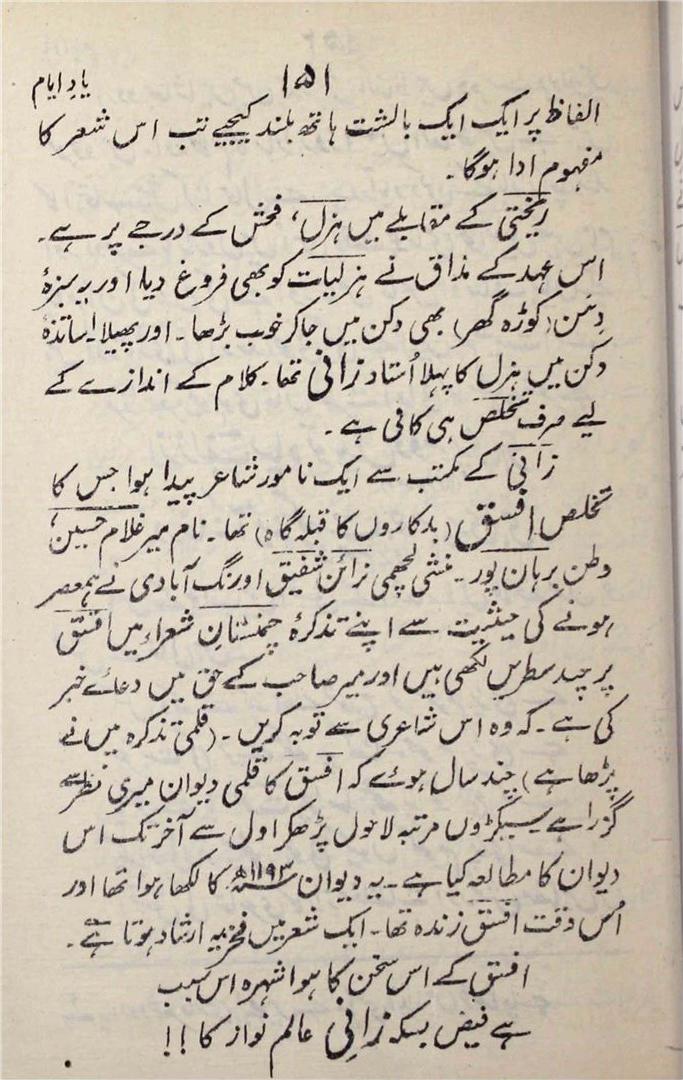 ۱۵۱
یادِ ایام
الفاظ پر ایک ایک بالشت ہاتھ بلند کیجیے تب اس شعر کا
مفہوم ادا ہوگا۔
ریختی کے مقابلے میں ہزل، فحش کے درجے پر ہے۔
اس عہد کے مذاق نے ہزلیات کو بھی فروغ دیا اور یہ سبزۂ
دِمن (کوڑہ گھر) بھی دکن میں جاکر خوب بڑھا۔ اور پھیلا اساتذۂ
دکن میں ہزل کا پہلا اُستاد زانی تھا۔ کلام کے اندازے کے
لیے صرف تخلص ہی کافی ہے۔
زانی کے مکتب سے ایک نامور شاعر پیدا ہوا جس کا
تخلص افسق (بدکاروں کا قبلہ گاہ) تھا۔ نام میر غلام حسین،
وطن برہان پور۔ منشی لچھمی نرائن شفیق اورنگ آبادی نے ہمعصر
ہونے کی حیثیت سے اپنے تذکرۂ چمنستانِ شعراء میں افسق
پر چند سطریں لکھی ہیں اور میر صاحب کے حق میں دعائے خیر
کی ہے۔ کہ وہ اس شاعری سے توبہ کریں۔ (قلمی تذکرہ میں نے
پڑھا ہے) چند سال ہوئے کہ افسق کا قلمی دیوان میری نظر سے
گزرا ہے سیکڑوں مرتبہ لاحول پڑھکر اول سے آخر تک اس
دیوان کا مطالعہ کیا ہے۔ یہ دیوان ۱۱۹۳ھ کا لکھا ہوا تھا اور
اُس وقت افسق زندہ تھا۔ ایک شعر میں فخریہ ارشاد ہوتا ہے۔
افسق کے اس سخن کا ہوا شہرہ اس سبب
ہے فیض بسکہ زانیِ عالم نواز کا !!